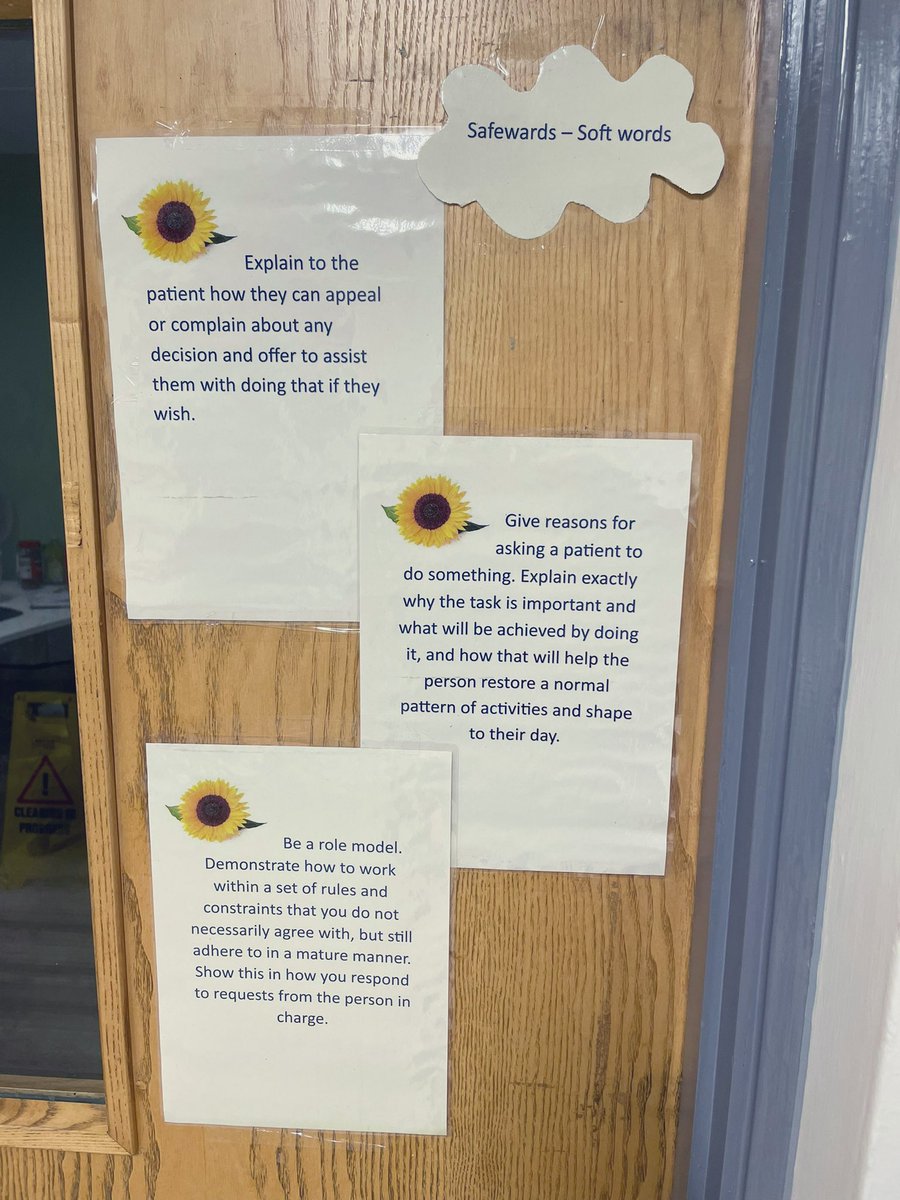 Safewards – Soft words
Explain to the
patient how they can appeal
or complain about any
decision and offer to assist
them with doing that if they
wish.
Give reasons for
asking a patient to
do something. Explain exactly
why the task is important and
what will be achieved by doing
it, and how that will help the
person restore a normal
pattern of activities and shape
to their day.
Be a role model.
Demonstrate how to work
within a set of rules and
constraints that you do not
necessarily agree with, but still
adhere to in a mature manner.
Show this in how you respond
to requests from the person in
charge.
CLEANING IN
PROGRESS